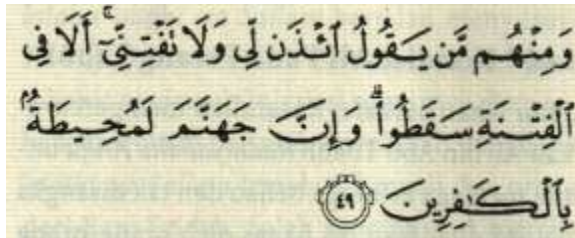 وَمِنْهُم مَّن يَقُولُ ٱئْذَن لِّى وَلَا نَفْتِنِّىٓ ۚ أَلَا فِى
ٱلْفِتْنَةِ سَقَطُوا۟ ۗ وَإِنَّ جَهَنَّمَ لَمُحِيطَةٌۢ
بِٱلْكَـٰفِرِينَ ٤٩